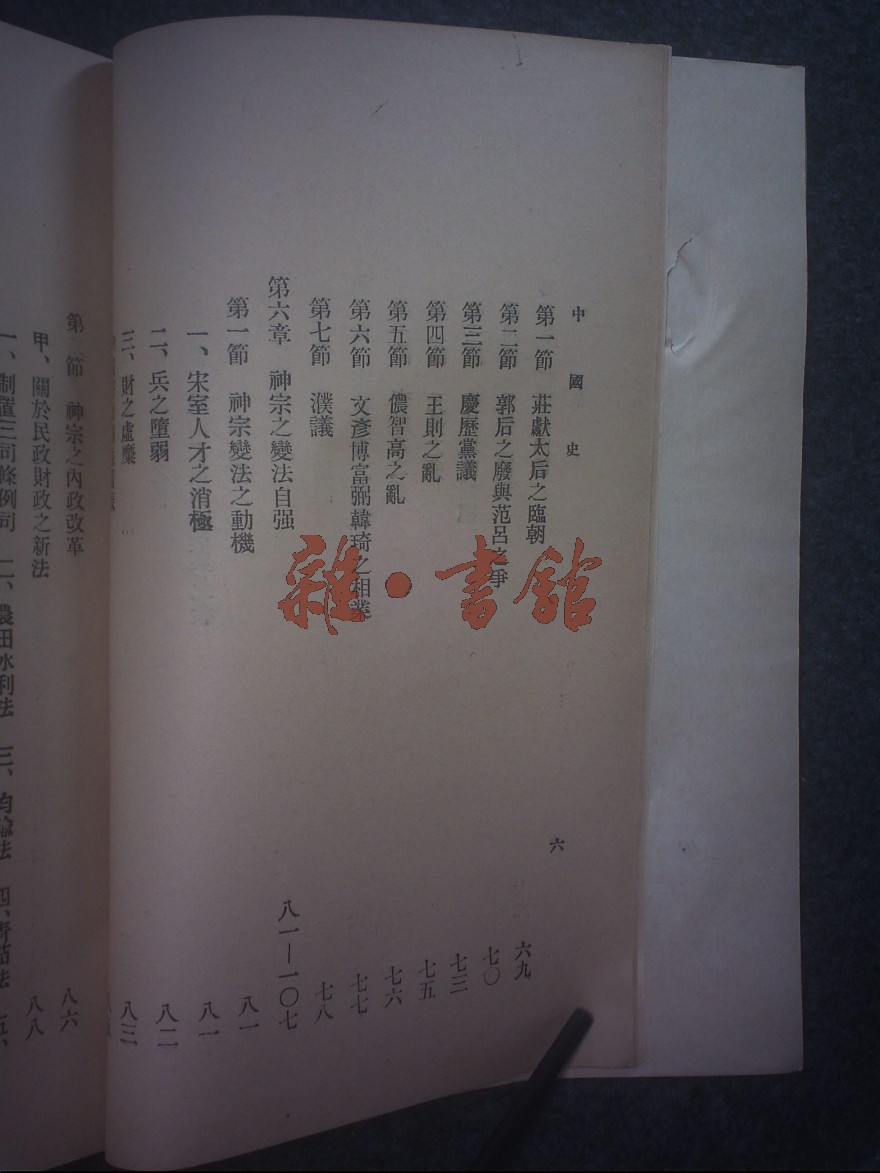 中國史
六
第一節 莊獻太后之臨朝 六九
第二節 郭后之廢與范呂之爭 七〇
第三節 慶歷黨議 七三
第四節 王則之亂 七五
第五節 儂智高之亂 七六
第六節 文彥博富弼韓琦之相業 七七
第七節 濮議 七八
第六章 神宗之變法自强 八一—一〇七
第一節 神宗變法之動機 八一
一、宋室人才之消極 八一
二、兵之墮弱 八二
三、財之虛糜 八三
第二節 神宗之內政改革 八六
甲、關於民政財政之新法 八八
一、制置三司條例司 二、農田水利法 三、均輸法 四、青苗法 五、
雜·書館